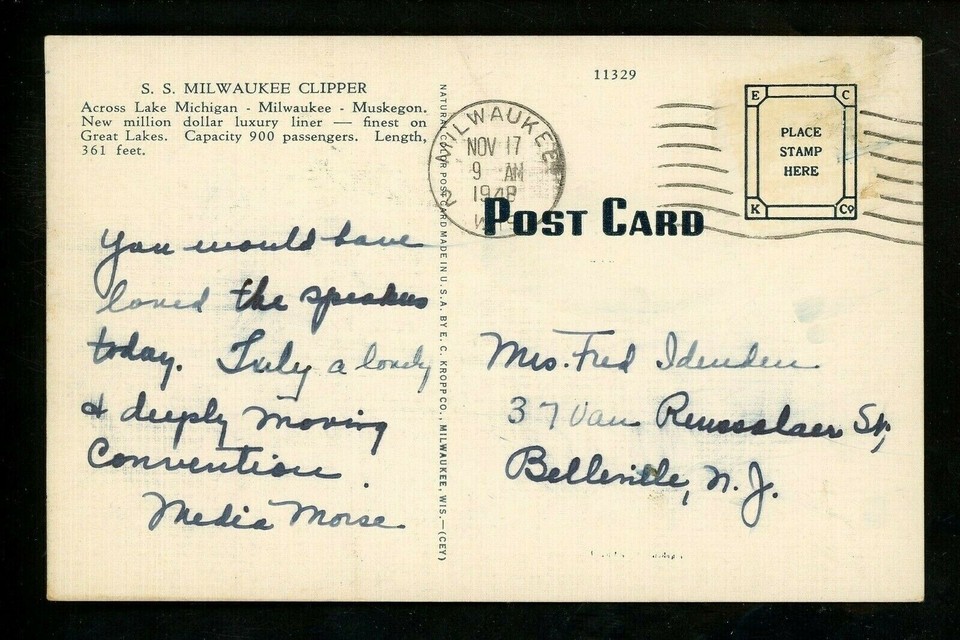 S. S. MILWAUKEE CLIPPER
Across Lake Michigan - Milwaukee - Muskegon.
New million dollar luxury liner — finest on
Great Lakes. Capacity 900 passengers. Length,
361 feet.
You would have
loved the speakers
today. Truly a lovely
& deeply moving
Convention.
Media Morse
NATURAL COLOR POST CARD MADE IN U.S.A. BY E. C. KROPP CO., MILWAUKEE, WIS.—(CEY)
11329
MILWAUKEE
NOV 17
9 AM
1948
2
POST CARD
E C
PLACE
STAMP
HERE
K Co
Mrs. Fred Idenden
37 Van Renssalaer St,
Belleville, N. J.